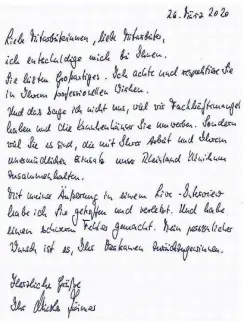 26. März 2020
Liebe Mitarbeiterinnen, liebe Mitarbeiter,
ich entschuldige mich bei Ihnen.
Sie leisten Großartiges. Ich achte und respektiere Sie
in Ihrem professionellen Wirken.
Und das sage ich nicht nur, weil wir Fachkräftemangel
haben und die Krankenhäuser Sie umwerben. Sondern
weil Sie es sind, die mit Ihrer Arbeit und Ihrem
unermüdlichen Einsatz unser Rheinland Klinikum
zusammenhalten.
Mit meiner Äußerung in einem Live-Interview
habe ich Sie getroffen und verletzt. Und habe
einen schweren Fehler gemacht. Mein persönlicher
Wunsch ist es, Ihr Vertrauen zurückzugewinnen.
Herzliche Grüße
Ihr